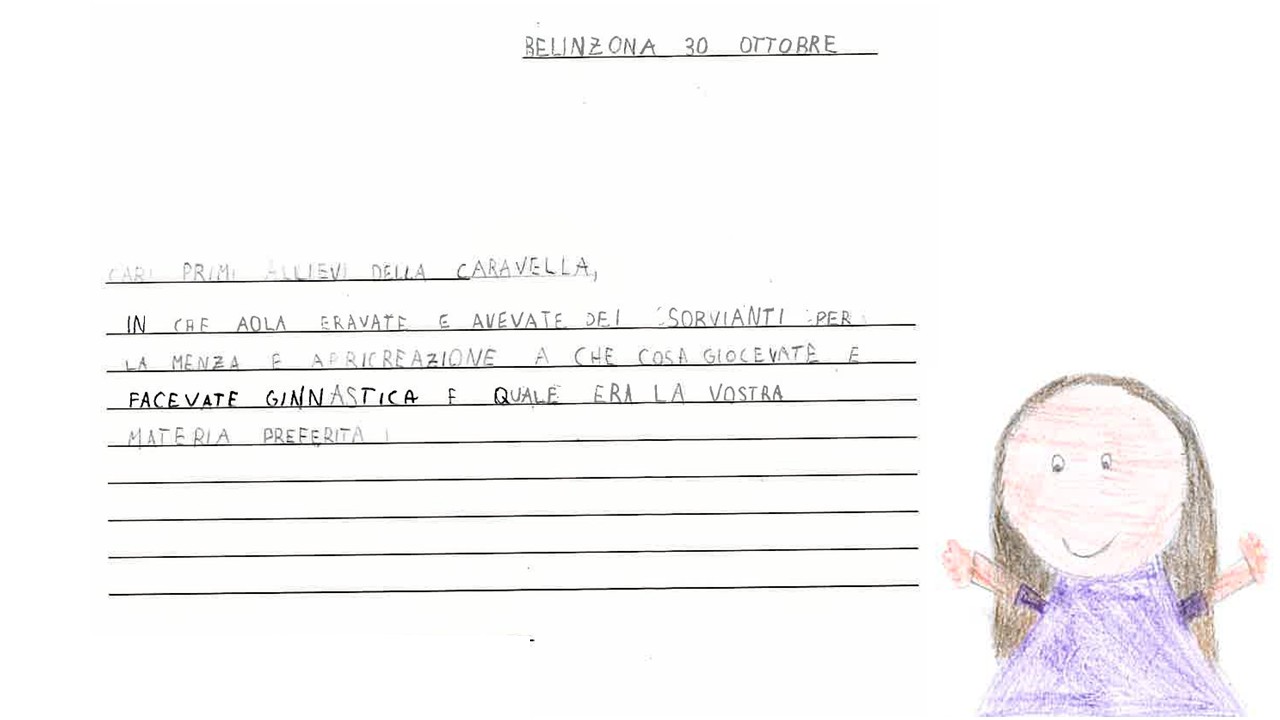 BELINZONA 30 OTTOBRE
CARI PRIMI ALLIEVI DELLA CARAVELLA,
IN CHE AOLA ERAVATE E AVEVATE DEI SORVIANTI PER
LA MENZA E A RICREAZIONE A CHE COSA GIOCEVATE E
FACEVATE GINNASTICA E QUALE ERA LA VOSTRA
MATERIA PREFERITA